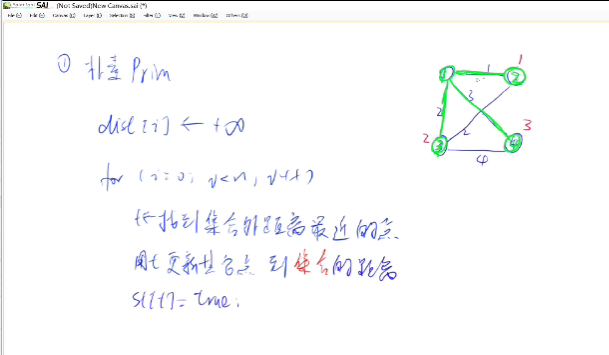 SAI (Not Saved)New Canvas.sai (*)
File Edit Canvas Layer Selection Filter View Window Others
① 朴素Prim
dist[i] ← +∞
for (i=0; i<n; i++)
t←找到集合外距离最近的点
用t更新其它点 到集合的距离
st[t]=true.
1 1
2
3
2 2
2 3
3 4
4